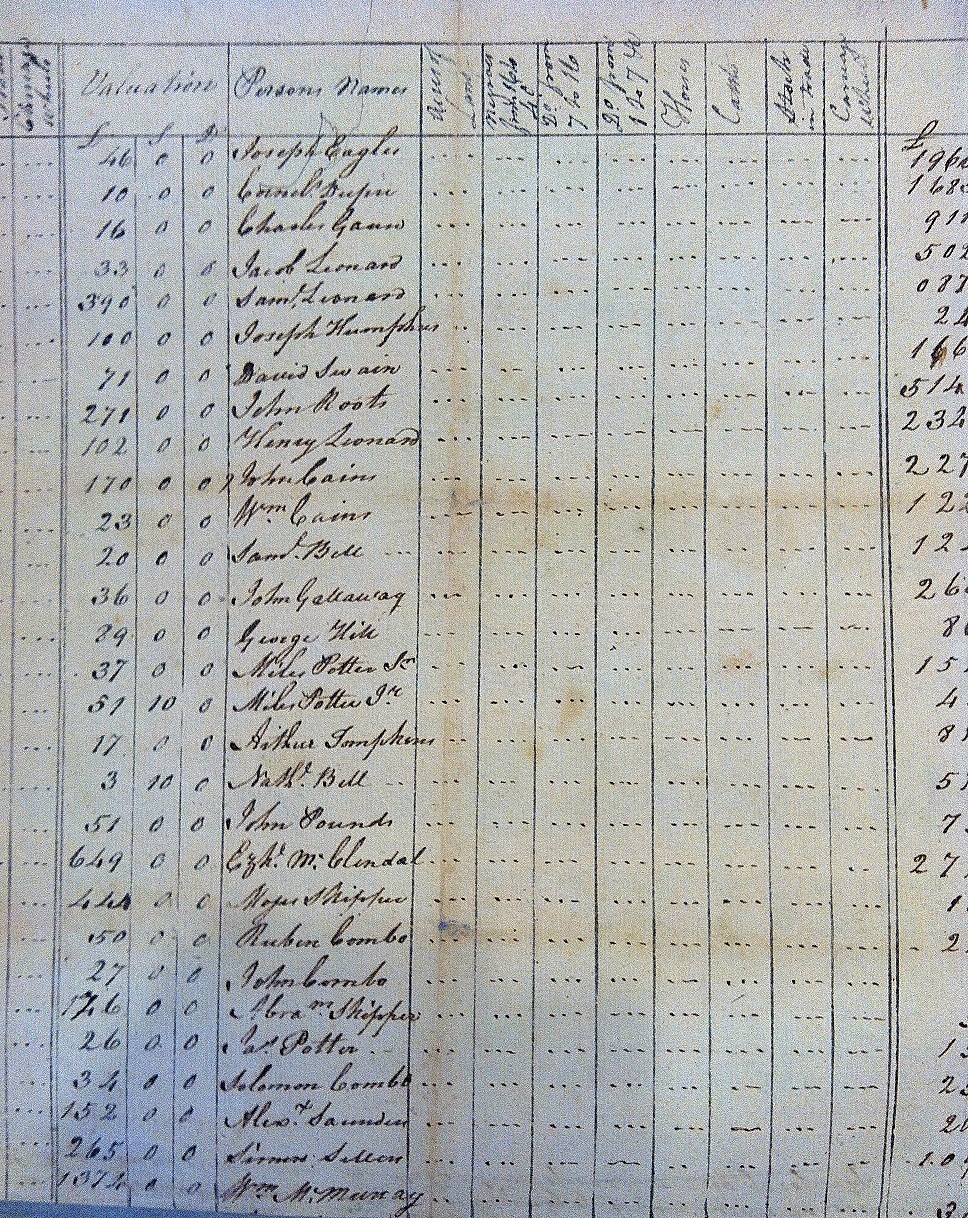 Carriage Wheels Valuation Persons Names Acres of Land Negroes from 16 to 40 Do. from 7 to 16 Do from 1 to 7 & Horses Cattle Stock in trade Carriage Wheels
£ S D £
46 0 0 Joseph Eagles 196
10 0 0 Cornels. Dupre 168
16 0 0 Charles Gause 911
33 0 0 Jacob Leonard 502
390 0 0 Saml. Leonard 087
100 0 0 Joseph Humphries 22
71 0 0 David Swain 166
271 0 0 John Roots 514
102 0 0 Henry Leonard 232
170 0 0 John Cains 227
23 0 0 Wm Cains 122
20 0 0 Saml. Bell 12
36 0 0 John Gallaway 26
89 0 0 George Hill 8
37 0 0 Miles Potter Sr 151
51 10 0 Miles Potter Jr 4
17 0 0 Arthur Tompkins 8
3 10 0 Nathl. Bell 51
51 0 0 John Pounds 7
649 0 0 Ezkl. Mc. Clendal 27
444 0 0 Moses Skipper 1
50 0 0 Ruben Combo 2
27 0 0 John Combo
146 0 0 Abram Skipper
26 0 0 Jas Potter 1
34 0 0 Solomon Combo 2
152 0 0 Alexr Saunders 2
265 0 0 Simon 10
1372 0 0 Wm Mc. Murray 3